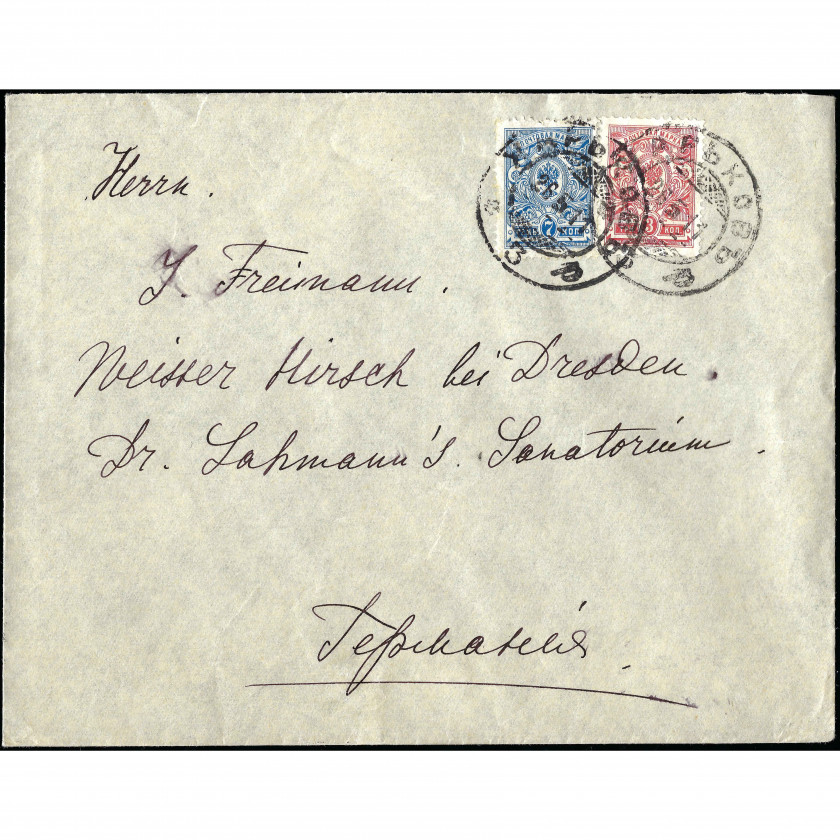 Herrn.
J. Freimann.
Weisser Hirsch bei Dresden.
Dr. Lahmann's. Sanatorium.
Германія.
ПОЧТОВАЯ МАРКА
7 КОП
ПОЧТОВАЯ МАРКА
3 КОП
ХАРЬКОВЪ
ХАРЬКОВЪ